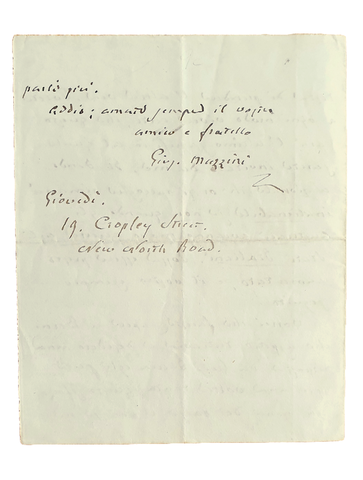 parlò più.
Addio; amate sempre il vostro
amico e fratello
Gius. Mazzini
Giovedì.
19. Cropley Street.
New North Road.